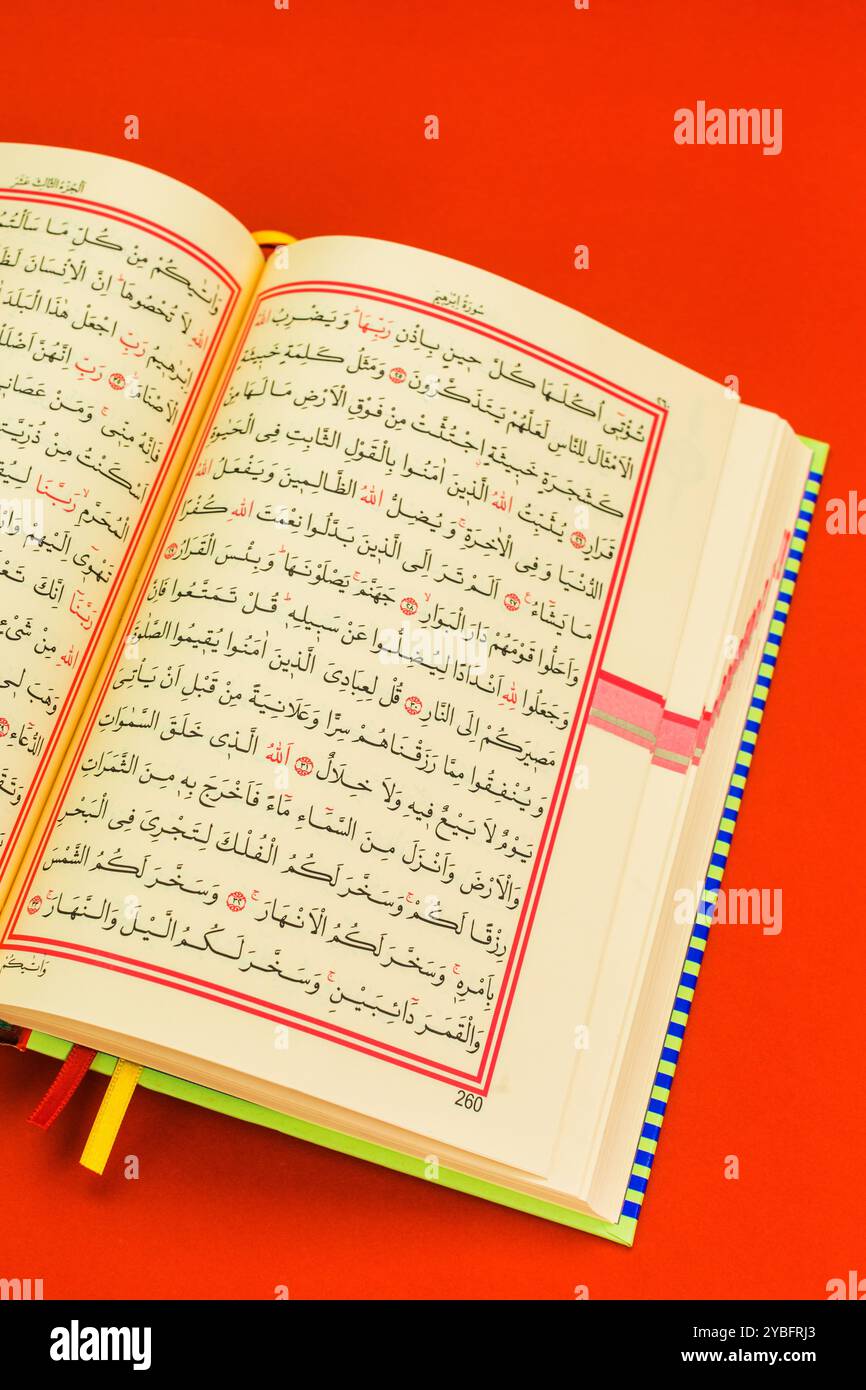 سُورَةُ اِبْرٰهٖيمَ
٢٦٠
تُؤْتٖٓي اُكُلَهَا كُلَّ حٖينٍ بِاِذْنِ رَبِّهَاؕ وَيَضْرِبُ اللّٰهُ
الْاَمْثَالَ لِلنَّاسِ لَعَلَّهُمْ يَتَذَكَّرُونَ ﴿٢٥﴾ وَمَثَلُ كَلِمَةٍ خَبٖيثَةٍ
كَشَجَرَةٍ خَبٖيثَةٍ اجْتُثَّتْ مِنْ فَوْقِ الْاَرْضِ مَا لَهَا مِنْ
قَرَارٍ ﴿٢٦﴾ يُثَبِّتُ اللّٰهُ الَّذٖينَ اٰمَنُوا بِالْقَوْلِ الثَّابِتِ فِي الْحَيٰوةِ
الدُّنْيَا وَفِي الْاٰخِرَةِۚ وَيُضِلُّ اللّٰهُ الظَّالِمٖينَ وَيَفْعَلُ اللّٰهُ
مَا يَشَٓاءُ ﴿٢٧﴾ اَلَمْ تَرَ اِلَى الَّذٖينَ بَدَّلُوا نِعْمَتَ اللّٰهِ كُفْرًا
وَاَحَلُّوا قَوْمَهُمْ دَارَ الْبَوَارِۙ ﴿٢٨﴾ جَهَنَّمَۚ يَصْلَوْنَهَاؕ وَبِئْسَ الْقَرَارُ ﴿٢٩﴾
وَجَعَلُوا لِلّٰهِ اَنْدَادًا لِيُضِلُّوا عَنْ سَبٖيلِهٖؕ قُلْ تَمَتَّعُوا فَاِنَّ
مَصٖيرَكُمْ اِلَى النَّارِ ﴿٣٠﴾ قُلْ لِعِبَادِيَ الَّذٖينَ اٰمَنُوا يُقٖيمُوا الصَّلٰوةَ
وَيُنْفِقُوا مِمَّا رَزَقْنَاهُمْ سِرًّا وَعَلَانِيَةً مِنْ قَبْلِ اَنْ يَأْتِيَ
يَوْمٌ لَا بَيْعٌ فٖيهِ وَلَا خِلَالٌ ﴿٣١﴾ اَللّٰهُ الَّذٖي خَلَقَ السَّمٰوَاتِ
وَالْاَرْضَ وَاَنْزَلَ مِنَ السَّمَٓاءِ مَٓاءً فَاَخْرَجَ بِهٖ مِنَ الثَّمَرَاتِ
رِزْقًا لَكُمْۚ وَسَخَّرَ لَكُمُ الْفُلْكَ لِتَجْرِيَ فِي الْبَحْرِ
بِاَمْرِهٖۚ وَسَخَّرَ لَكُمُ الْاَنْهَارَۚ ﴿٣٢﴾ وَسَخَّرَ لَكُمُ الشَّمْسَ
وَالْقَمَرَ دَٓائِبَيْنِۚ وَسَخَّرَ لَكُمُ الَّيْلَ وَالنَّهَارَۚ ﴿٣٣﴾
وَاٰتٰيكُمْ
260
اَلْجُزْءُ الثَّالِثَ عَشَرَ
وَاٰتٰيكُمْ مِنْ كُلِّ مَا سَاَلْتُمُ
اللّٰهِ لَا تُحْصُوهَاؕ اِنَّ الْاِنْسَانَ
اِبْرٰهٖيمُ رَبِّ اجْعَلْ هٰذَا الْبَلَدَ
الْاَصْنَامَؕ ﴿٣٥﴾ رَبِّ اِنَّهُنَّ
فَاِنَّهُ مِنّٖيۚ وَمَنْ
اَسْكَنْتُ مِنْ
الْمُحَرَّمِۙ رَبَّنَا
تَهْوٖٓي اِلَيْهِمْ
رَبَّنَٓا اِنَّكَ
اللّٰهِ مِنْ
وَهَبَ لٖي
الدُّعَٓاءِ ﴿٣٩﴾
alamy
Image ID: 2YBFRJ3
www.alamy.com